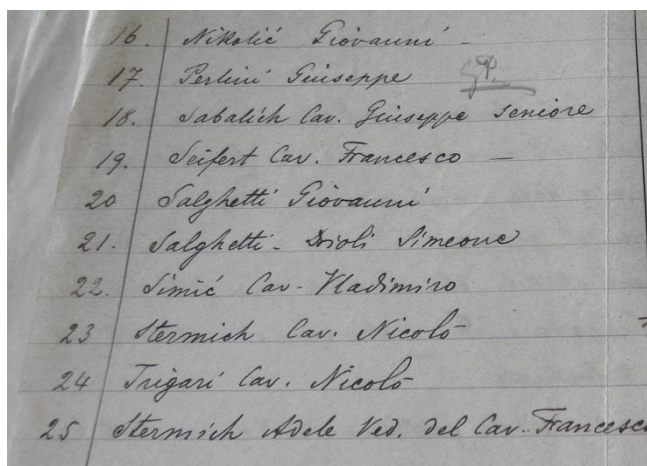 16. Nikolić Giovanni -
17. Perlini Giuseppe
18. Sabalich Cav. Giuseppe seniore
19. Seifert Cav. Francesco -
20 Salghetti Giovanni
21. Salghetti - Drioli Simeone
22. Simić Cav. Vladimiro
23 Stermich Cav. Nicolò
24 Trigari Cav. Nicolò
25 Stermich Adele Ved. del Cav. Francesco